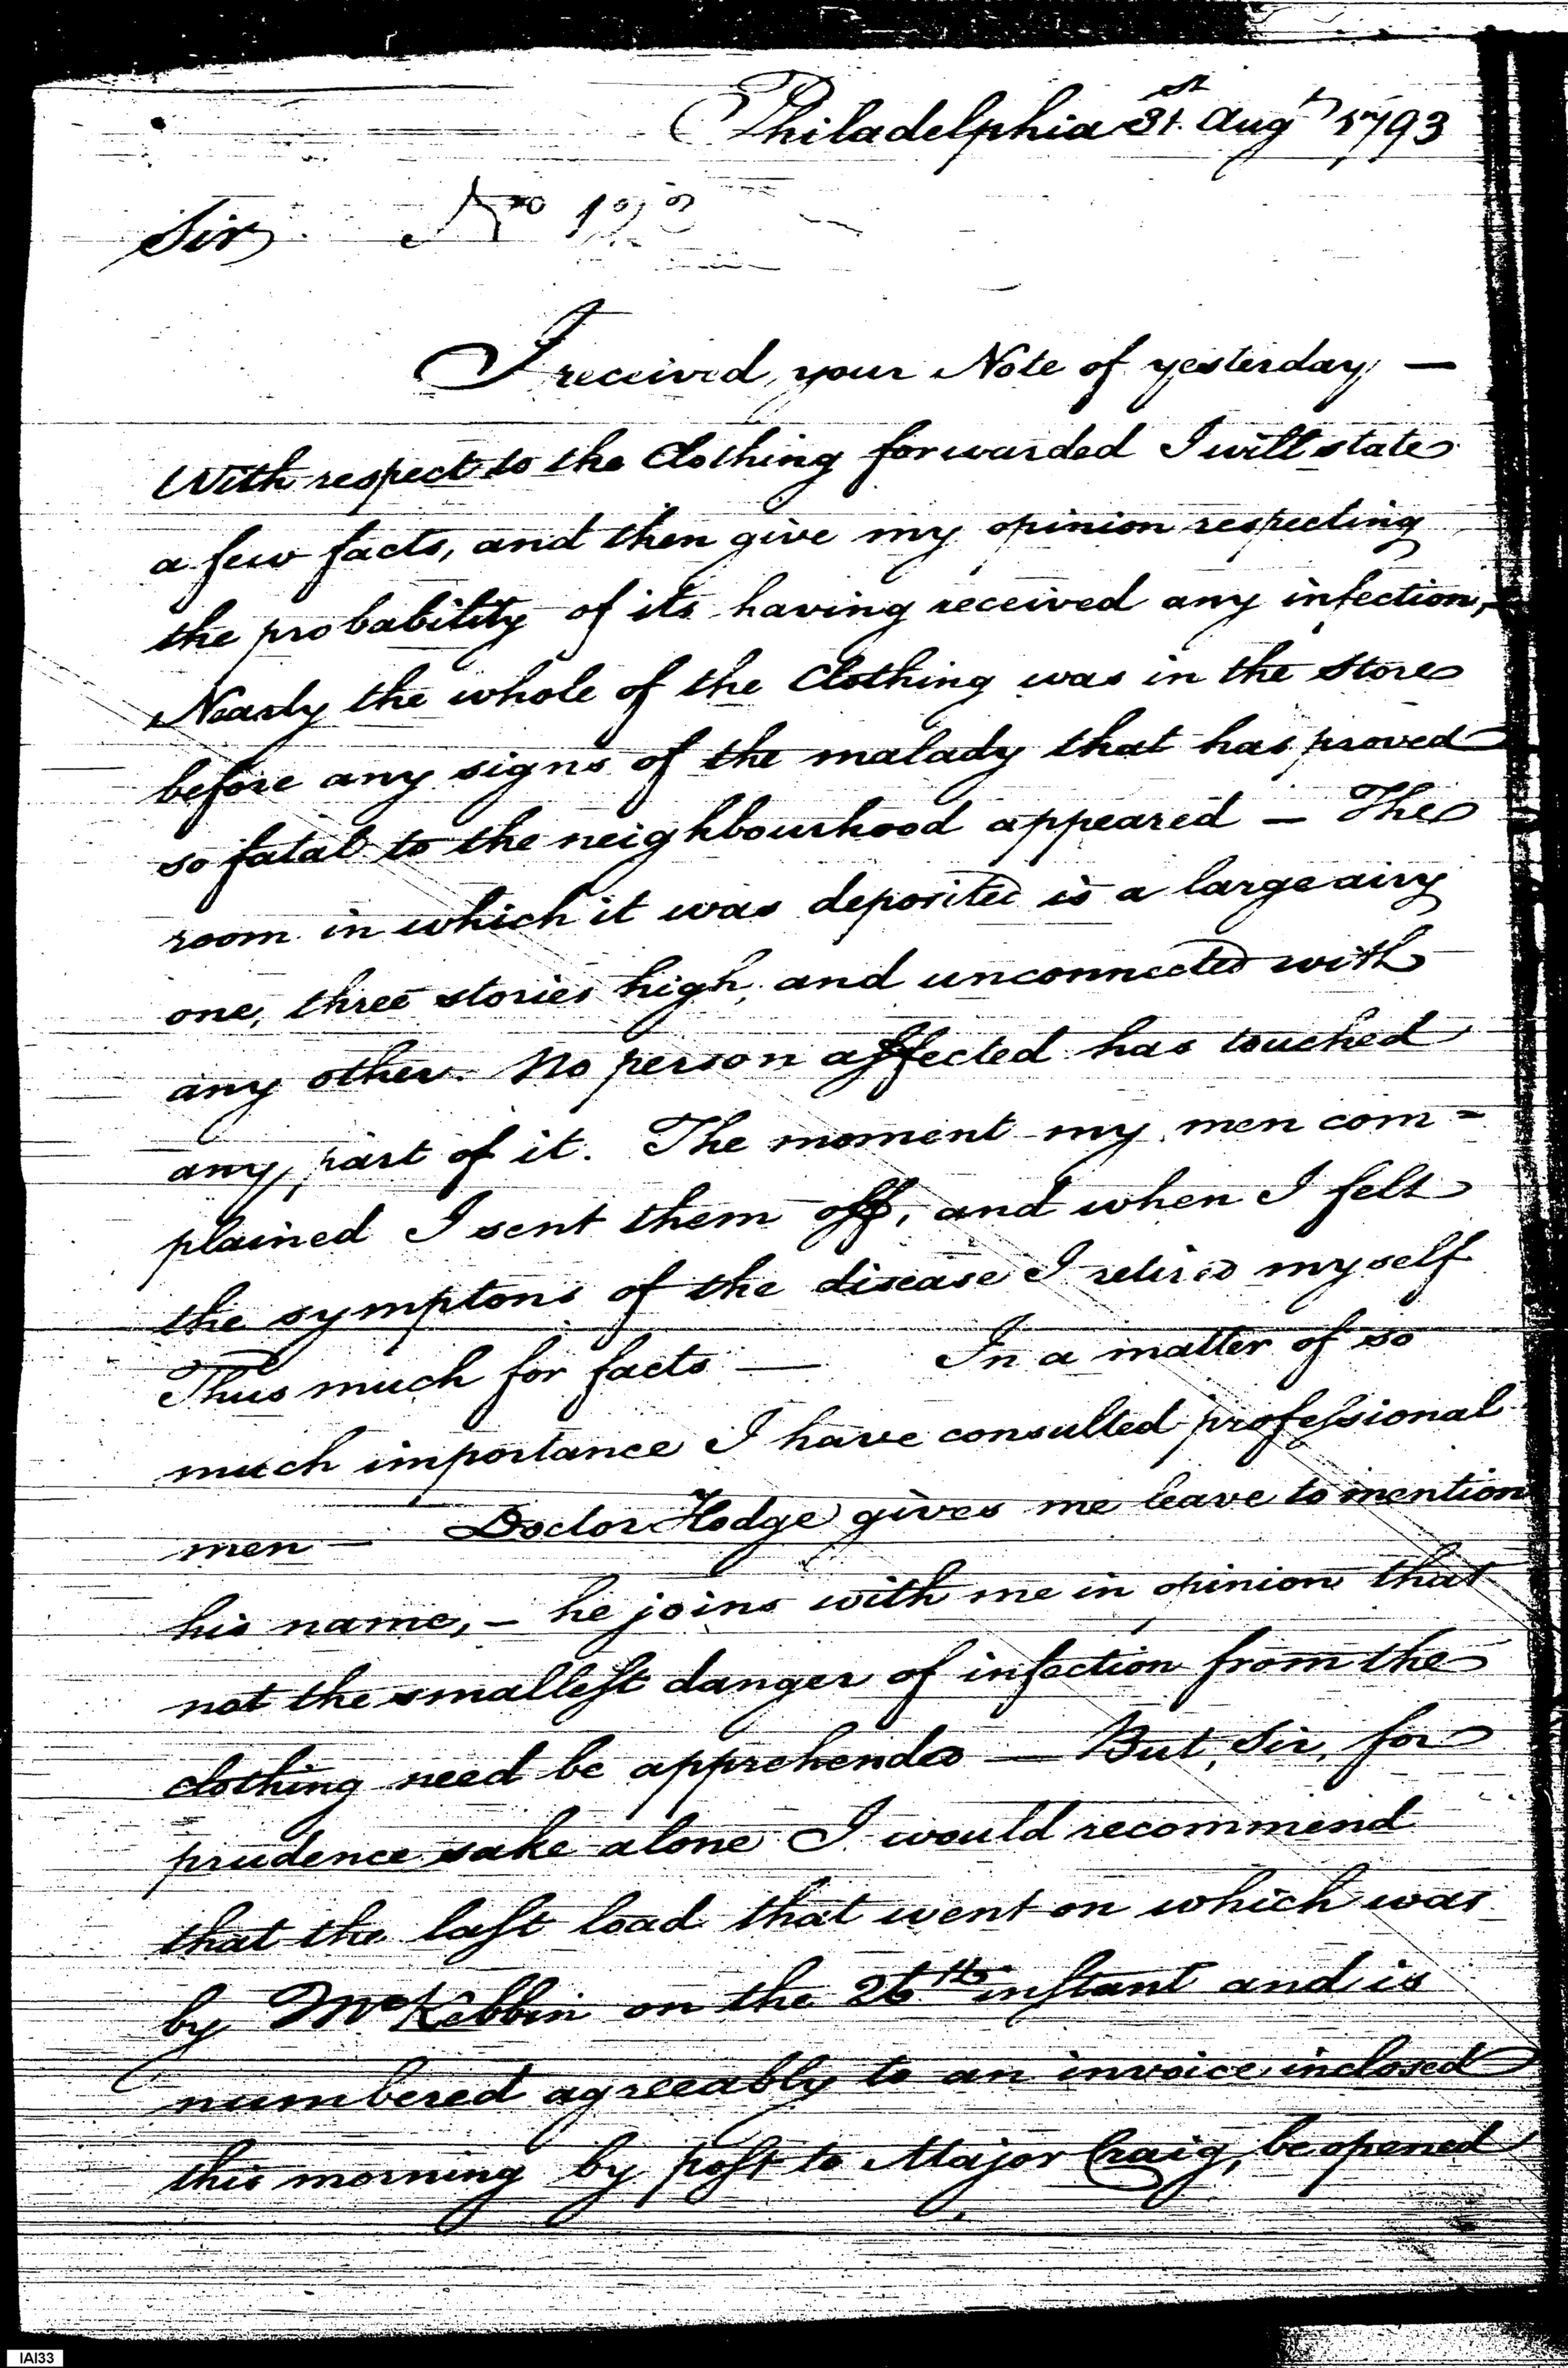 Philadelphia 31st Augt 1793
Sir No 123
I received your Note of yesterday —
With respect to the Clothing forwarded I will state
a few facts, and then give my opinion respecting
the probability of its having received any infection,
Nearly the whole of the Clothing was in the Store
before any signs of the malady that has proved
so fatal to the neighbourhood appeared — The
room in which it was deposited is a large airy
one, three stories high, and unconnected with
any other. No person affected has touched
any part of it. The moment my men com=
plained I sent them off, and when I felt
the symptons of the disease I retired myself
Thus much for facts — In a matter of so
much importance I have consulted professional
men — Doctor Hodge gives me leave to mention
his name, — he joins with me in opinion that
not the smallest danger of infection from the
clothing need be apprehended — But, Sir, for
prudence sake alone I would recommend
that the last load that went on which was
by McKibbin on the 26th instant and is
numbered agreeably to an invoice inclosed
this morning by post to Major Craig, be opened
IAI33